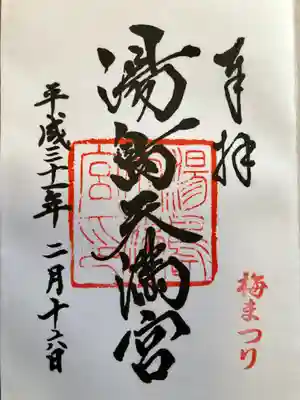 奉拝
梅まつり
湯島天満宮
平成三十一年二月十六日